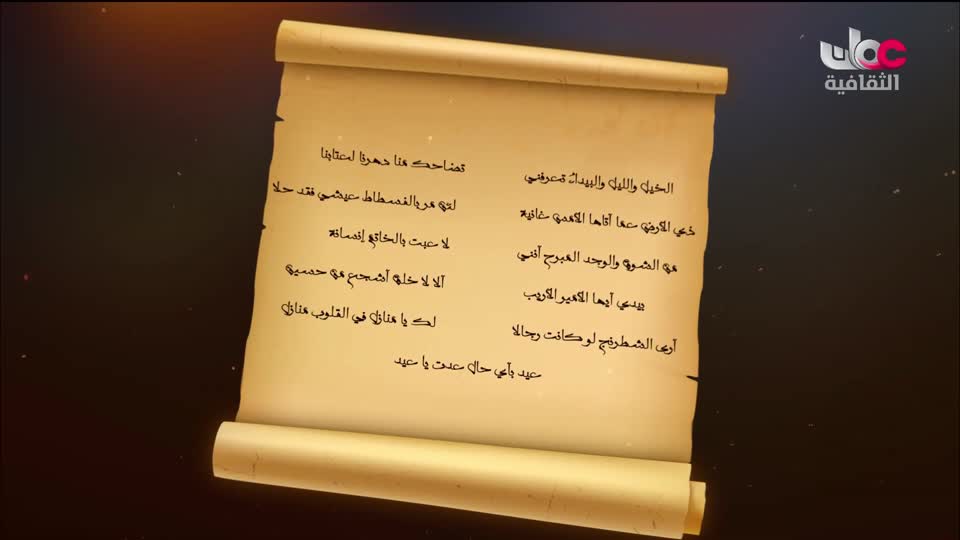 عمان
الثقافية
الخيل والليل والبيداءُ تعرفني
تضاحك منا دهرنا لعتابنا
ذي الأرض عما أتاها الأمس غانية
لئن مر بالفسطاط عيشي فقد حلا
من الشوق والوجد المبرح أنني
لاعبت بالخاتم إنسانة
بيدي أيها الأمير الأريب
ألا لا خلق أشجع من حسين
أرى الشطرنج لو كانت رجالا
لك يا منازل في القلوب منازل
عيد بأي حال عدت يا عيد